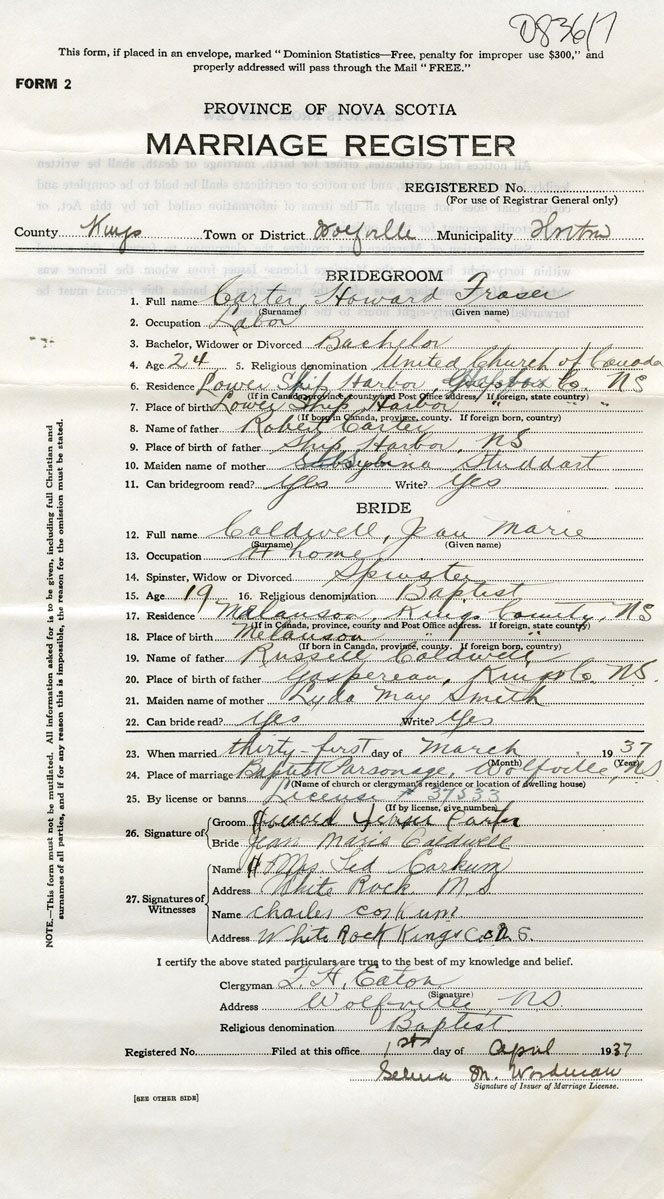 D836/7
This form, if placed in an envelope, marked "Dominion Statistics—Free, penalty for improper use $300," and
properly addressed will pass through the Mail "FREE."
FORM 2
PROVINCE OF NOVA SCOTIA
MARRIAGE REGISTER
REGISTERED No.
(For use of Registrar General only)
County Kings Town or District Wolfville Municipality Horton
BRIDEGROOM
1. Full name Carter, Howard Fraser
(Surname) (Given name)
2. Occupation Labor
3. Bachelor, Widower or Divorced Bachelor
4. Age 24 5. Religious denomination United Church of Canada
6. Residence Lower Ship Harbor, Co. NS
(If in Canada, province, county and Post Office address. If foreign, state country)
7. Place of birth Lower Ship Harbor " " "
(If born in Canada, province, county. If foreign born, country)
8. Name of father Robert Carter
9. Place of birth of father Ship Harbor, NS
10. Maiden name of mother Studdart
11. Can bridegroom read? Yes Write? Yes
BRIDE
12. Full name Caldwell, Jean Marie
(Surname) (Given name)
13. Occupation At home
14. Spinster, Widow or Divorced Spinster
15. Age 19 16. Religious denomination Baptist
17. Residence Melanson, Kings County, NS
(If in Canada, province, county and Post Office address. If foreign, state country)
18. Place of birth Melanson " " "
(If born in Canada, province, county. If foreign born, country)
19. Name of father Russell Caldwell
20. Place of birth of father Gaspereau, Kings Co. NS.
21. Maiden name of mother Lyda May Smith
22. Can bride read? Yes Write? Yes
23. When married thirty-first day of March 1937
(Month) (Year)
24. Place of marriage Baptist Parsonage, Wolfville, NS
(Name of church or clergyman's residence or location of dwelling house)
25. By license or banns License # 37533
(If by license, give number)
26. Signature of
Groom Howard Fraser Carter
Bride Jean Marie Caldwell
27. Signatures of Witnesses
Name Mrs Ted Corkum
Address White Rock N S
Name Charles Corkum
Address White Rock Kings Co. N.S.
I certify the above stated particulars are true to the best of my knowledge and belief.
Clergyman Eaton
(Signature)
Address Wolfville, NS.
Religious denomination Baptist
Registered No. Filed at this office 1st day of April 1937
Selina M. Wordman
Signature of Issuer of Marriage License.
[SEE OTHER SIDE]
NOTE.—This form must not be mutilated. All information asked for is to be given, including full Christian and
surnames of all parties, and if for any reason this is impossible, the reason for the omission must be stated.